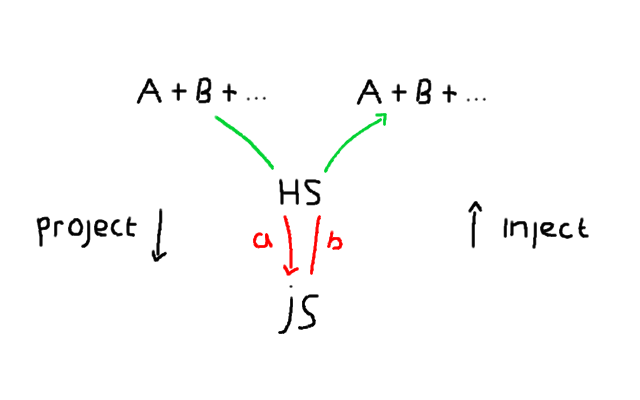 A + B + ... A + B + ...
HS
project inject
a b
js